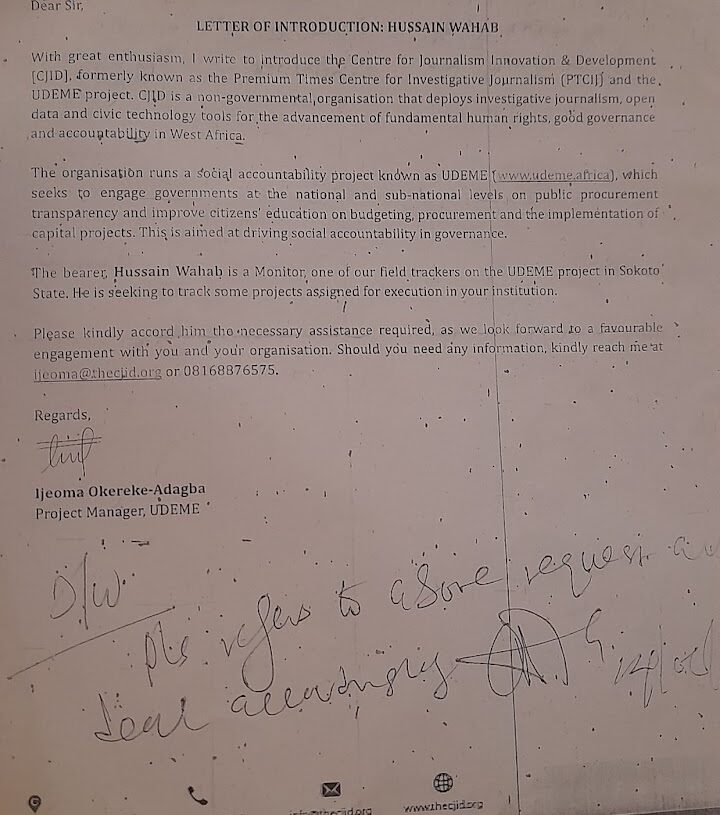 Dear Sir,
LETTER OF INTRODUCTION: HUSSAIN WAHAB
With great enthusiasm, I write to introduce the Centre for Journalism Innovation & Development
[CJID], formerly known as the Premium Times Centre for Investigative Journalism (PTCIJ) and the
UDEME project. CJID is a non-governmental organisation that deploys investigative journalism, open
data and civic technology tools for the advancement of fundamental human rights, good governance
and accountability in West Africa.
The organisation runs a social accountability project known as UDEME (www.udeme.africa), which
seeks to engage governments at the national and sub-national levels on public procurement
transparency and improve citizens' education on budgeting, procurement and the implementation of
capital projects. This is aimed at driving social accountability in governance.
The bearer, Hussain Wahab is a Monitor, one of our field trackers on the UDEME project in Sokoto
State. He is seeking to track some projects assigned for execution in your institution.
Please kindly accord him the necessary assistance required, as we look forward to a favourable
engagement with you and your organisation. Should you need any information, kindly reach me at
ijeoma@thecjid.org or 08168876575.
Regards,
Ijeoma Okereke-Adagba
Project Manager, UDEME
D/W
pls refer to above request
deal accordingly
info@thecjid.org www.thecjid.org